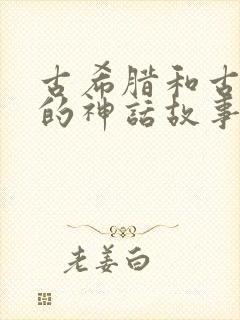 古希腊和古
的神話故事
老姜白